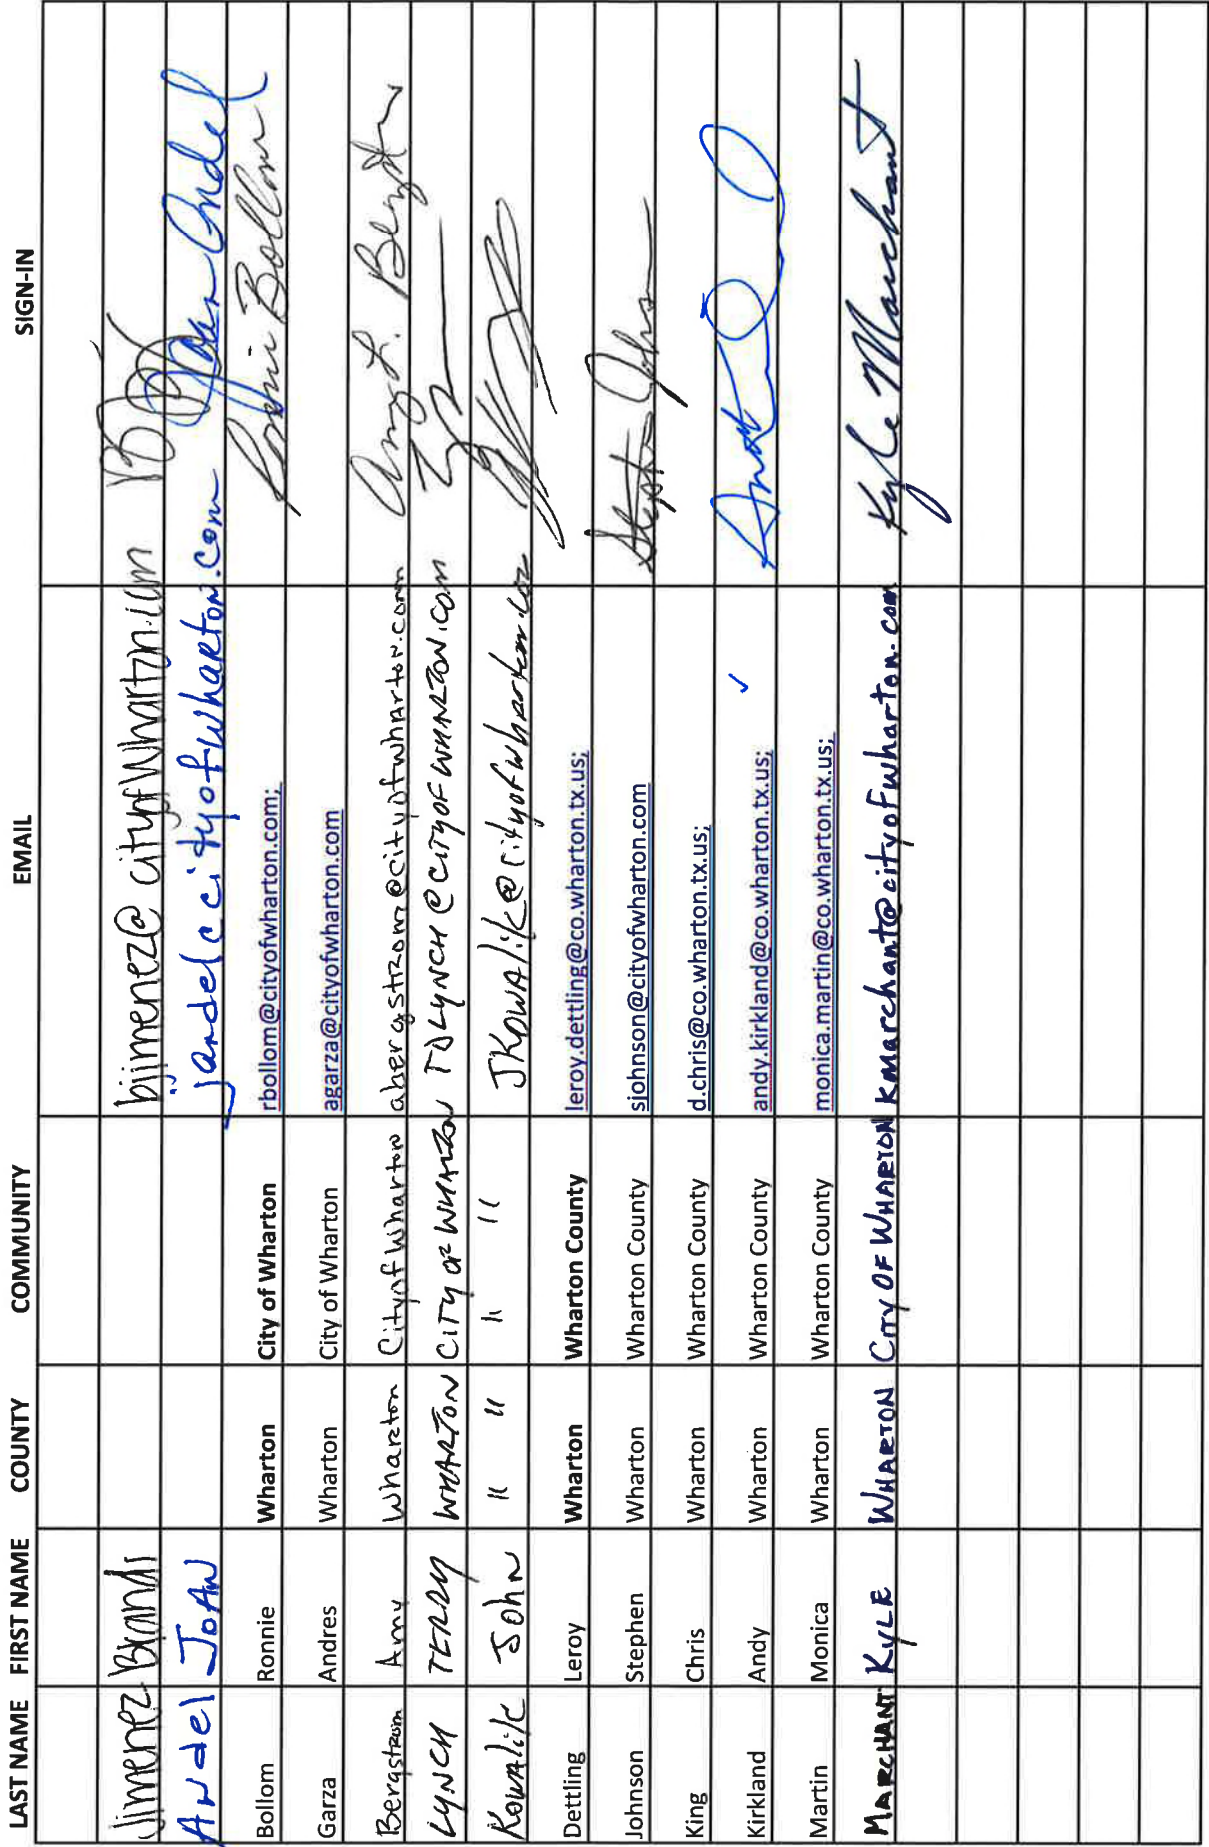 LAST NAME FIRST NAME COUNTY COMMUNITY EMAIL SIGN-IN
Jimenez Brandi bjimenez@cityofwharton.com
Andel Joan jandel@cityofwharton.com Joan Andel
Bollom Ronnie Wharton City of Wharton rbollom@cityofwharton.com; Ronnie Bollom
Garza Andres Wharton City of Wharton agarza@cityofwharton.com
Bergstrom Amy Wharton City of Wharton abergstrom@cityofwharton.com Amy L. Bergstrom
LYNCH TERRY WHARTON CITY OF WHARTON TDLYNCH@CITYOFWHARTON.COM
Kowalik John " " " " JKowalik@cityofwharton.com
Dettling Leroy Wharton Wharton County leroy.dettling@co.wharton.tx.us;
Johnson Stephen Wharton Wharton County sjohnson@cityofwharton.com Stephen Johnson
King Chris Wharton Wharton County d.chris@co.wharton.tx.us;
Kirkland Andy Wharton Wharton County andy.kirkland@co.wharton.tx.us; ✓
Martin Monica Wharton Wharton County monica.martin@co.wharton.tx.us;
MARCHANT KYLE WHARTON CITY OF WHARTON kmarchant@cityofwharton.com Kyle Marchant